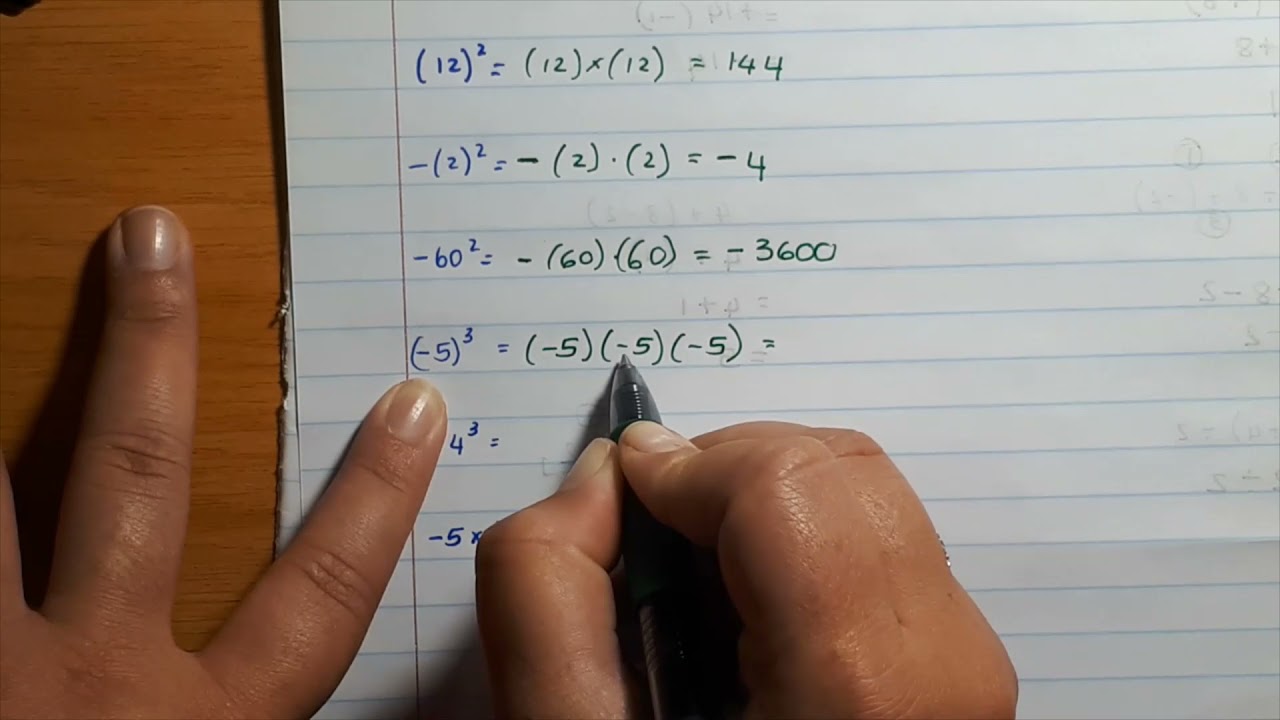 (12)² = (12)×(12) = 144
-(2)² = - (2)·(2) = -4
-60² = - (60)(60) = -3600
(-5)³ = (-5)(-5)(-5) =
4³ =
-5×